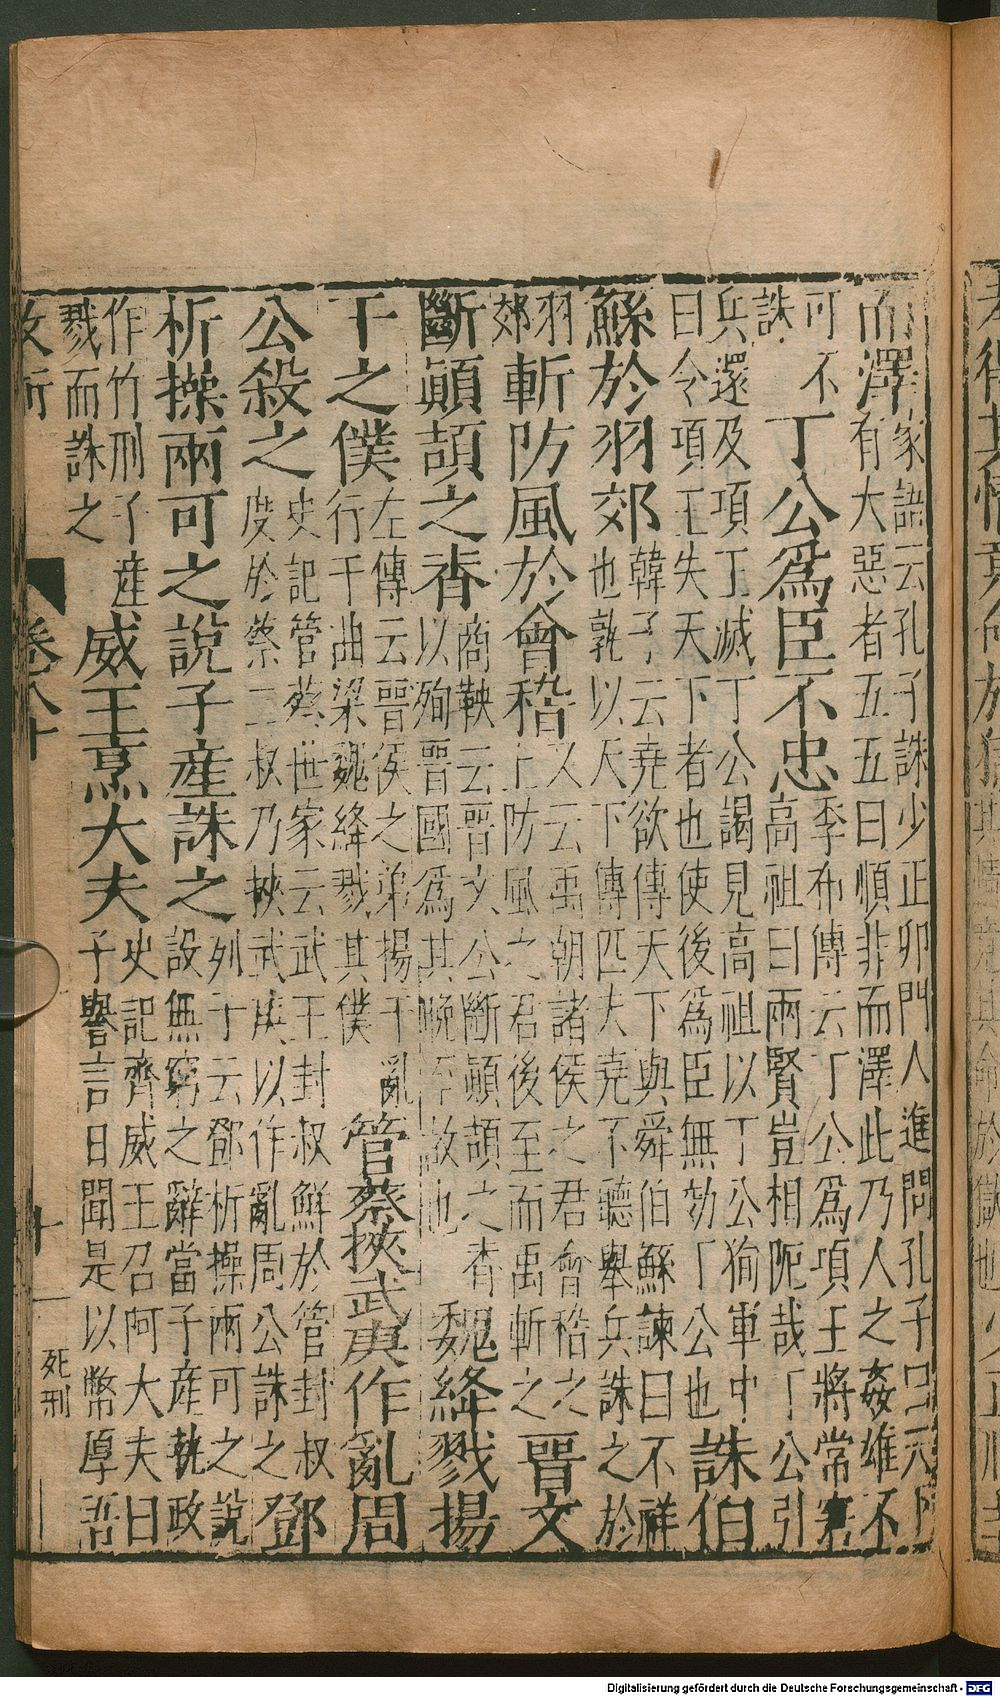 而澤家語云孔子誅少正卯門人進問孔子曰天下
有大惡者五五曰順非而澤此乃人之姦雄不
可不
誅
丁公爲臣不忠
季布傳云丁公爲項王將常窘
高祖曰兩賢豈相阨哉丁公引
兵還及項丁滅丁公謁見高祖以丁公狥軍中
曰令項王失天下者也使後爲臣無効丁公也
誅伯
鯀於羽郊
韓子云堯欲傳天下與舜伯鯀諫曰不祥
也孰以天下傳匹夫堯不聽舉兵誅之於
羽
郊
斬防風於會稽
又云禹朝諸侯之君會稽之
上防風之君後至而禹斬之
晋文
斷顚頡之脊
商鞅云晋文公斷顚頡之脊
以殉晋國爲其晚至故也
魏絳戮揚
干之僕
左傳云晋侯之弟揚干亂
行于曲梁魏絳戮其僕
管蔡挾武庚作亂周
公殺之
史記管蔡世家云武王封叔鮮於管封叔
度於蔡二叔乃挾武庚以作亂周公誅之
鄧
析操兩可之說子產誅之
列子云鄧析操兩可之說
設無窮之辭當子產執政
作竹刑子產
戮而誅之
威王烹大夫
史記齊威王召阿大夫曰
子譽言日聞是以幣厚吾
卷八十
十一
死刑
Digitalisierung gefördert durch die Deutsche Forschungsgemeinschaft - DFG